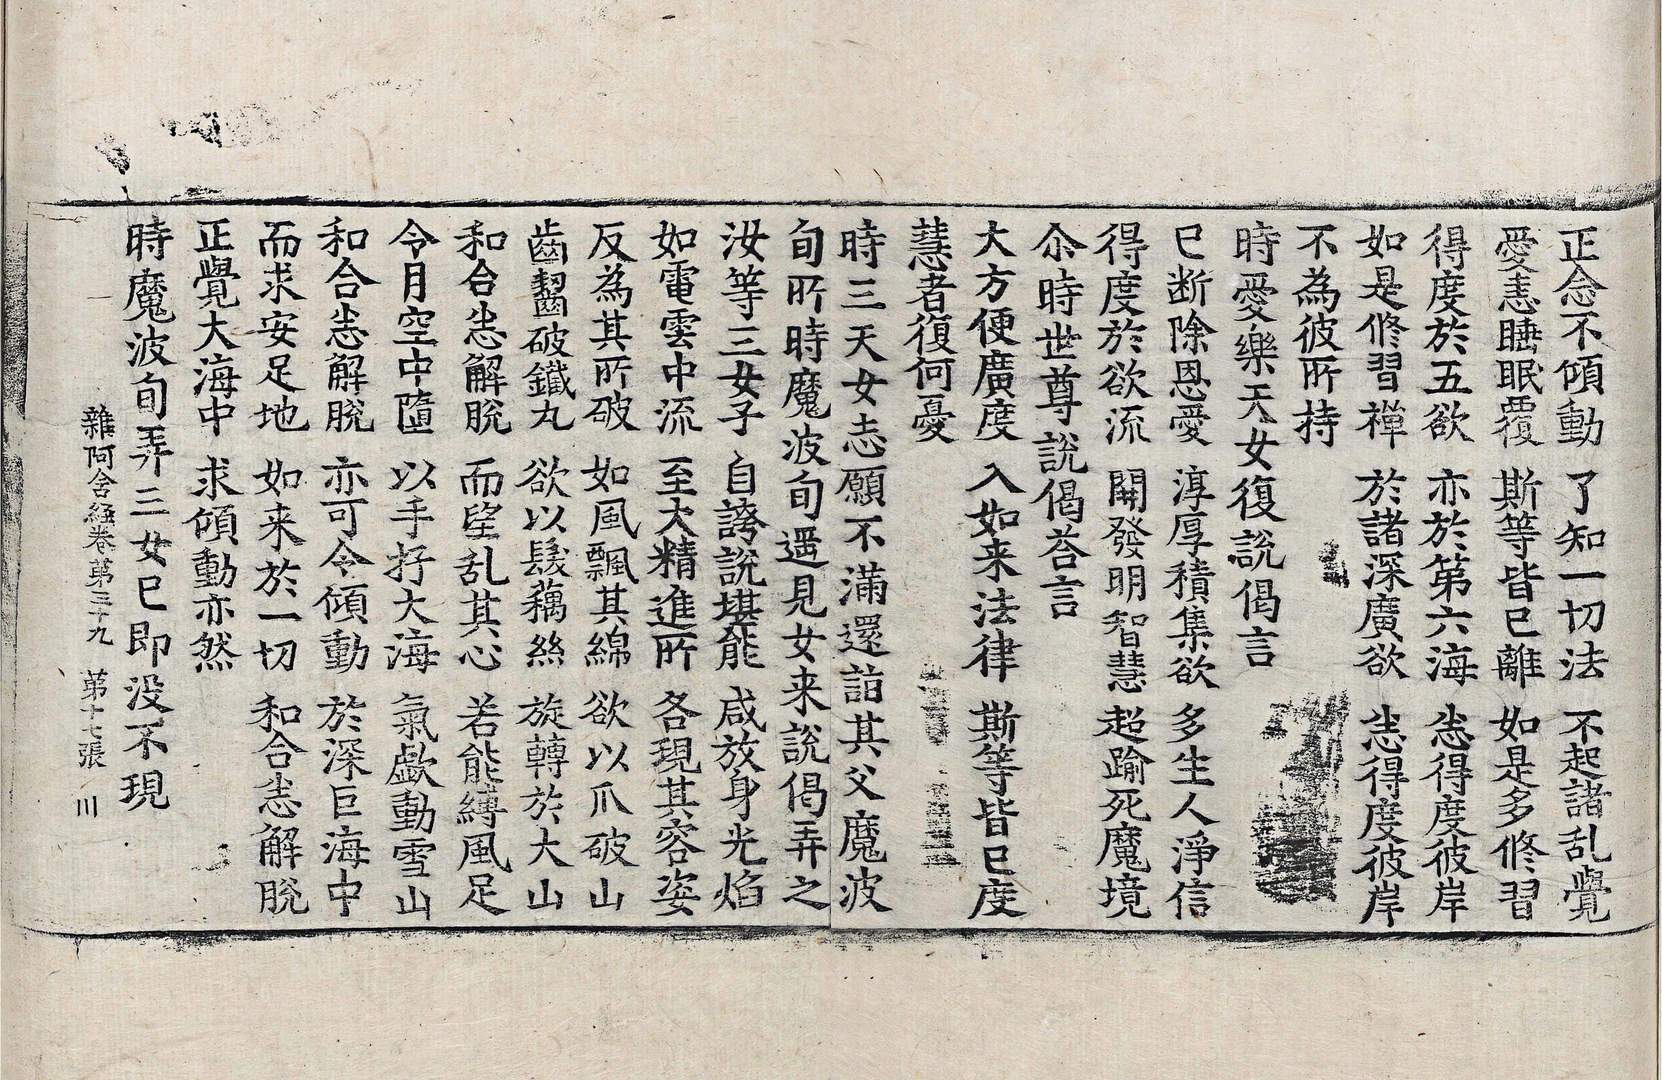 正念不傾動　了知一切法　不起諸乱覺
愛恚睡眠覆　斯等皆已離　如是多修習
得度於五欲　亦於第六海　悉得度彼岸
如是修習禪　於諸深廣欲　悉得度彼岸
不為彼所持
時愛樂天女復說偈言
已断除恩愛　淳厚積集欲　多生人淨信
得度於欲流　開發明智慧　超踰死魔境
尒時世尊說偈荅言
大方便廣度　入如来法律　斯等皆已度
慧者復何憂
時三天女志願不滿還詣其父魔波
旬所時魔波旬遥見女来說偈弄之
汝等三女子　自誇說堪能　咸放身光焰
如電雲中流　至大精進所　各現其容姿
反為其所破　如風飄其綿　欲以爪破山
齒齧破鐵丸　欲以髮藕絲　旋轉於大山
和合悉解脫　而望乱其心　若能縛風足
令月空中墮　以手抒大海　氣歔動雪山
和合悉解脫　亦可令傾動　於深巨海中
而求安足地　如来於一切　和合悉解脫
正覺大海中　求傾動亦然
時魔波旬弄三女已即没不現
雜阿含経卷第三十九　第十七張　川